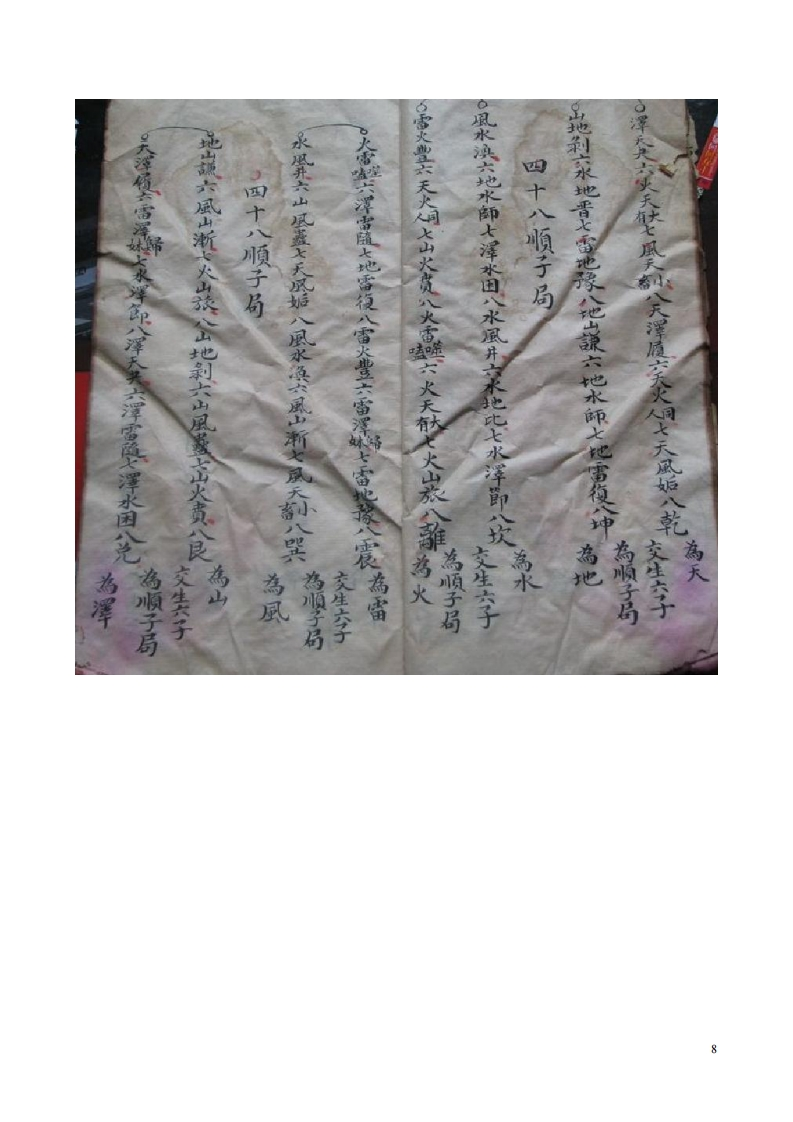 澤天夬六火天大有七風天小畜八天澤履六天火同人七天風姤八乾
為天
交生六子
為順子局
山地剝六火地晋七雷地豫八地山謙六地水師七地雷復八坤
為地
四十八順子局
風水渙六地水師七澤水困八水風井六水地比七水澤節八坎
為水
交生六子
為順子局
雷火豐六天火同人七山火賁八火雷噬嗑六火天大有七火山旅八離
為火
火雷噬嗑六澤雷隨七地雷復八雷火豐六雷澤歸妹七雷地豫八震
為雷
交生六子
為順子局
水風井六山風蠱七天風姤八風水渙六風山漸七風天小畜八巽
為風
四十八順子局
地山謙六風山漸七火山旅八山地剝六山風蠱七山火賁八艮
為山
交生六子
為順子局
天澤履六雷澤歸妹七水澤節八澤天夬六澤雷隨七澤水困八兌
為澤
8